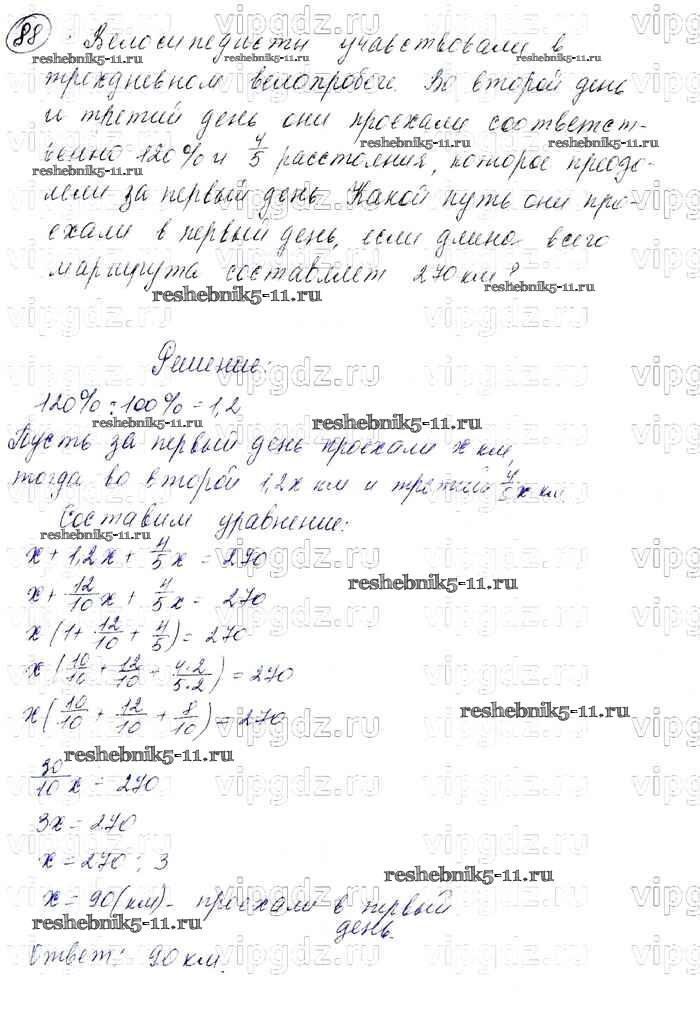 88 Велосипедисты учавствовали в
трехдневном велопробеге. Во второй день
и третий день они проехали соответст-
венно 120% и 4/5 расстояния, которое преодо-
лели за первый день. Какой путь они про-
ехали в первый день, если длина всего
маршрута составляет 270 км?
reshebnik5-11.ru
Решение:
120% : 100% = 1,2
Пусть за первый день проехали x км,
тогда во второй 1,2x км и третий 4/5 x км.
Составим уравнение:
x + 1,2x + 4/5 x = 270
x + 12/10 x + 4/5 x = 270
x (1 + 12/10 + 4/5) = 270
x (10/10 + 12/10 + 4·2/5·2) = 270
x (10/10 + 12/10 + 8/10) = 270
30/10 x = 270
3x = 270
x = 270 : 3
x = 90 (км) - проехали в первый
день.
Ответ: 90 км.
vipgdz.ru